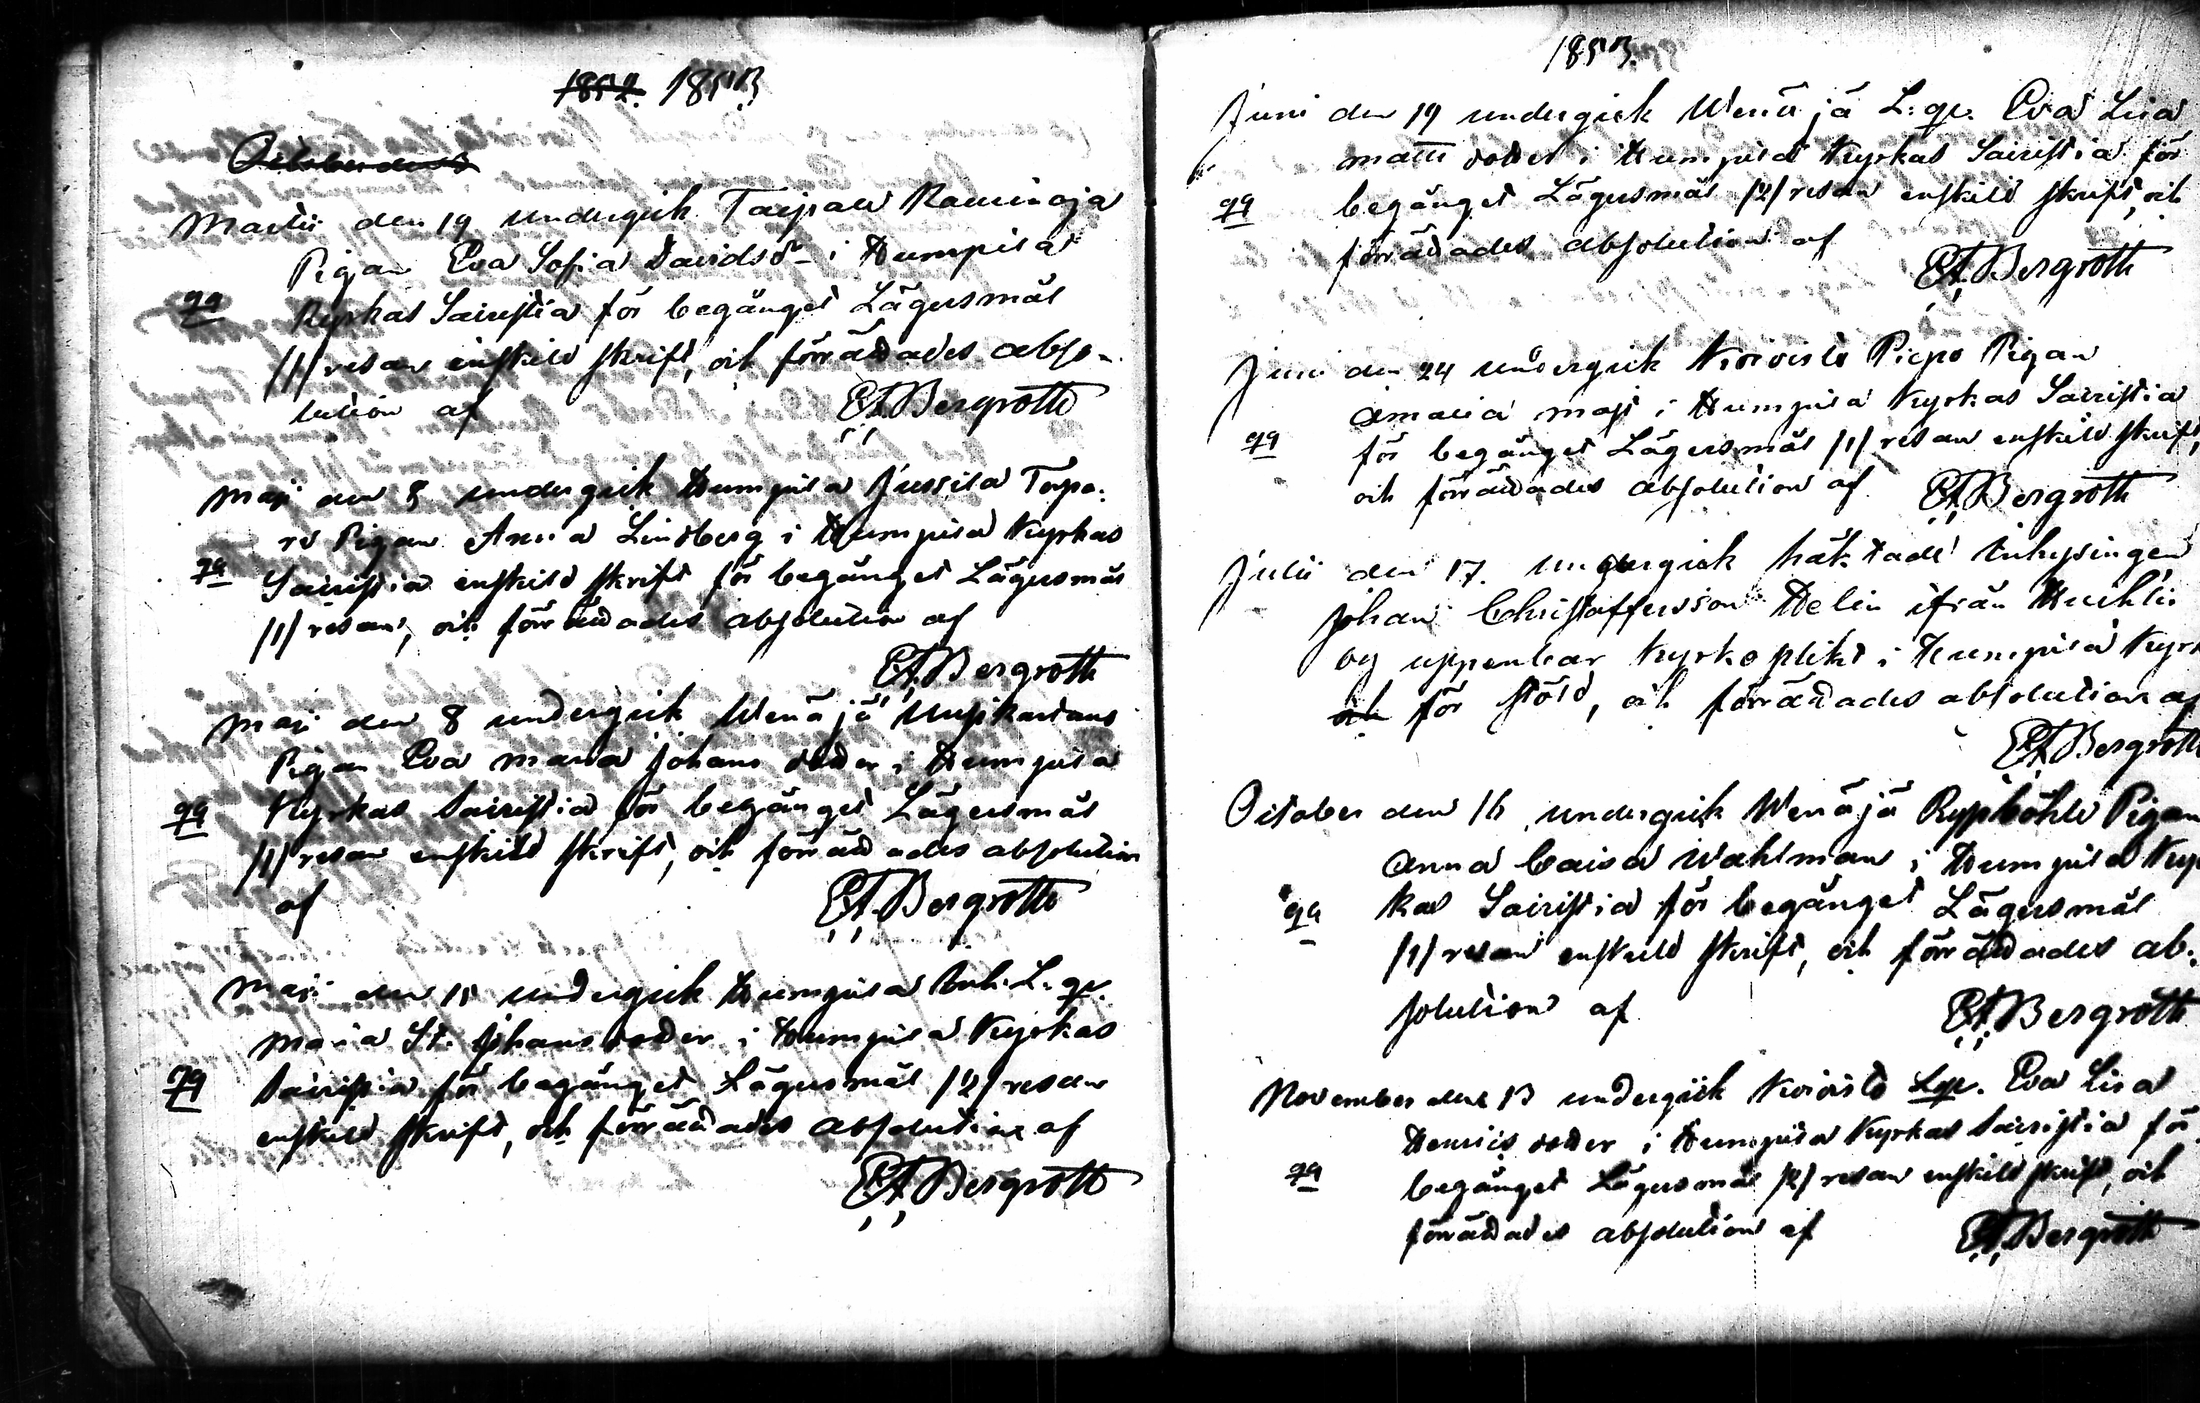 1852. 1853
Octoberdens
Martii den 19 undergick Taipale Raminoja
Pigan Eva Sofia Davidsdr i Humpila
qq
Kyrkas Sacristia för begånget Lägersmål
/1/ resan enskild skrift, och förrättades abso-
lution af
EA Bergroth
Maji den 5 undergick Humpila Jussila Torpa-
re Pigan Anna Lindberg i Humpila Kyrkas
qq
Sacristia enskild skrift för begånget Lägersmål
/1/ resan, och förrättades absolution af
EA Bergroth
Maji den 8 undergick Wenäjä
Pigan Eva Maria Johans dotter i Humpila
qq
Kyrkas Sacristia för begånget Lägersmål
/1/ resan enskild skrift, och förrättades absolution
af
EA Bergroth
Maji den 15 undergick Humpila Inh. L. qv.
Maria St. Johans dotter i Humpila Kyrkas
qq
Sacristia för begånget Lägersmål /2/ resan
enskild skrift, och förrättades absolution af
EA Bergroth
1853.
Juni den 19 undergick Wenäjä L. qv. Eva Lisa
Matts dotter i Humpila Kyrkas Sacristia för
qq
begånget Lägersmål /2/ resan enskild skrift, och
förrättades absolution af
EA Bergroth
Juni den 24 undergick Koivisto Piepo Pigan
Amalia Majt i Humpila Kyrkas Sacristia
qq
för begånget Lägersmål /1/ resan enskild skrift,
och förrättades absolution af
EA Bergroth
Julii den 17. undergick häktade Inhysingen
Johan Christoffersson Helin ifrån Huhtii
by uppenbar Kyrkoplikt i Humpila Kyrk
och för stöld, och förrättades absolution af
EA Bergroth
October den 16 undergick Wenäjä Rypböhle Pigan
Anna Caisa Wahlman i Humpila Kyr
qq
kas Sacristia för begånget Lägersmål
/1/ resan enskild skrift, och förrättades ab-
solution af
EA Bergroth
November den 13 undergick Koivisto Lqv. Eva Lisa
Henrics dotter i Humpila Kyrkas Sacristia för
qq
begånget Lägersmål /2/ resan enskild skrift, och
förrättades absolution af
EA Bergroth